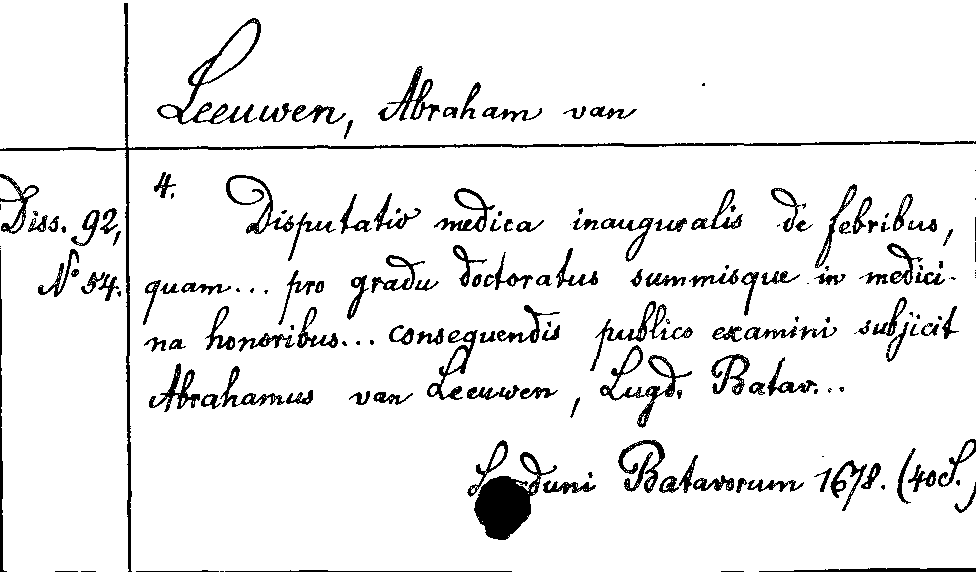 Leeuwen, Abraham van
Diss. 92,
No 54.
4. Disputatio medica inauguralis de febribus,
quam... pro gradu doctoratus summisque in medici-
na honoribus... consequendis publico examini subjicit
Abrahamus van Leeuwen, Lugd. Batav...
Batavorum 1678. (40 S.)